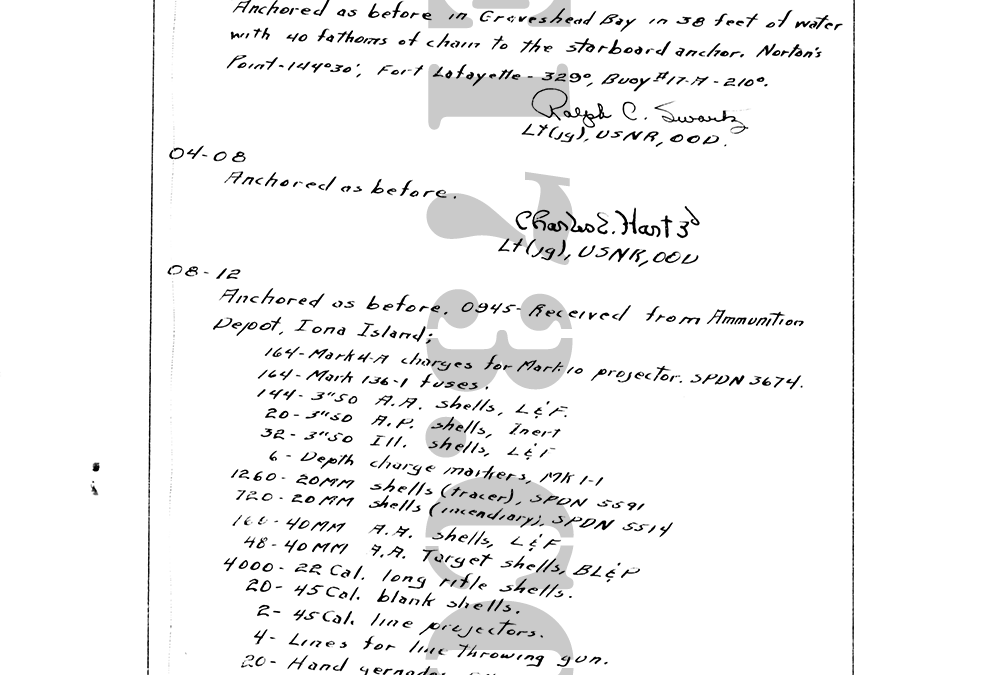 Anchored as before in Graveshead Bay in 38 feet of water
with 40 fathoms of chain to the starboard anchor. Norton's
Point-144°30', Fort Lafayette - 329°, Buoy #17-A - 210°.
Ralph C. Swartz
Lt(jg), USNR, OOD.
04-08
Anchored as before.
Charles E. Hart 3d
Lt(jg), USNR, OOD
08-12
Anchored as before. 0945- Received from Ammunition
Depot, Iona Island;
164-Mark 4-A charges for Mark 10 projector. SPDN 3674.
164-Mark 136-1 fuses.
144-3"50 A.A. shells, L&F.
20-3"50 A.P. shells, Inert
32-3"50 Ill. shells, L&F
6-Depth charge markers, MK 1-1
1260-20MM shells (tracer), SPDN 5591
720-20MM shells (incendiary), SPDN 5514
160-40MM A.A. shells, L&F
48-40MM A.A. Target shells, BL&P
4000-22 Cal. long rifle shells.
20-45 Cal. blank shells.
2-45 Cal. line projectors.
4-Lines for line throwing gun.
20-Hand gernades